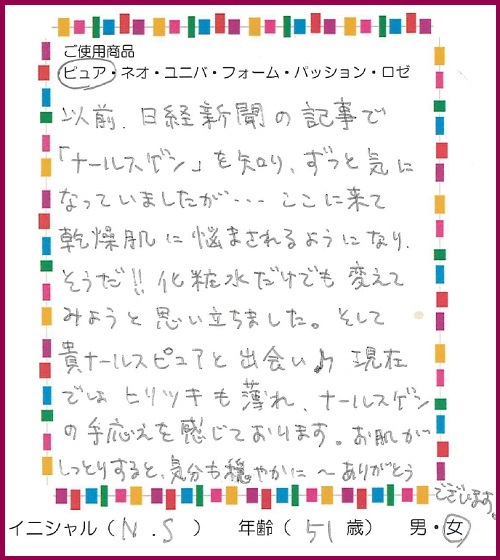 ご使用商品
ピュア・ネオ・ユニバ・フォーム・パッション・ロゼ
以前、日経新聞の記事で
「ナールスゲン」を知り、ずっと気に
なっていましたが・・・ここに来て
乾燥肌に悩まされるようになり、
そうだ!!化粧水だけでも変えて
みようと思い立ちました。そして
貴ナールスピュアと出会い♪現在
ではヒリツキも薄れ、ナールスゲン
の手応えを感じております。お肌が
しっとりすると、気分も穏やかに〜ありがとう
ございます。
イニシャル(N.S) 年齢(51歳) 男・女